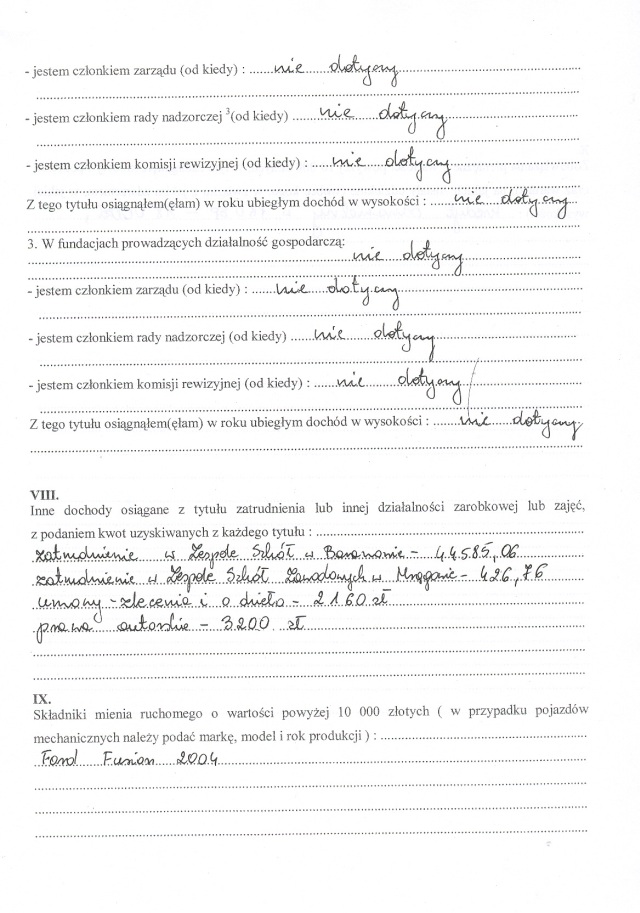 - jestem członkiem zarządu (od kiedy) : ......nie......dotyczy......
- jestem członkiem rady nadzorczej ³(od kiedy) ......nie......dotyczy......
- jestem członkiem komisji rewizyjnej (od kiedy) : ......nie......dotyczy......
Z tego tytułu osiągnąłem(ęłam) w roku ubiegłym dochód w wysokości : ......nie......dotyczy...
3. W fundacjach prowadzących działalność gospodarczą:
......nie......dotyczy......
- jestem członkiem zarządu (od kiedy) : ......nie......dotyczy......
- jestem członkiem rady nadzorczej (od kiedy) ......nie......dotyczy......
- jestem członkiem komisji rewizyjnej (od kiedy) : ......nie......dotyczy......
Z tego tytułu osiągnąłem(ęłam) w roku ubiegłym dochód w wysokości : ......nie......dotyczy.
VIII.
Inne dochody osiągane z tytułu zatrudnienia lub innej działalności zarobkowej lub zajęć,
z podaniem kwot uzyskiwanych z każdego tytułu : ......
zatrudnienie w Zespole Szkół w Baranowie - 44585,06
zatrudnienie w Zespole Szkół Zawodowych w Mrągowie - 426,76
umowy - zlecenia i o dzieło - 2160 zł
prawa autorskie - 3200 zł
IX.
Składniki mienia ruchomego o wartości powyżej 10 000 złotych ( w przypadku pojazdów
mechanicznych należy podać markę, model i rok produkcji ) : ......
Ford Fusion 2004